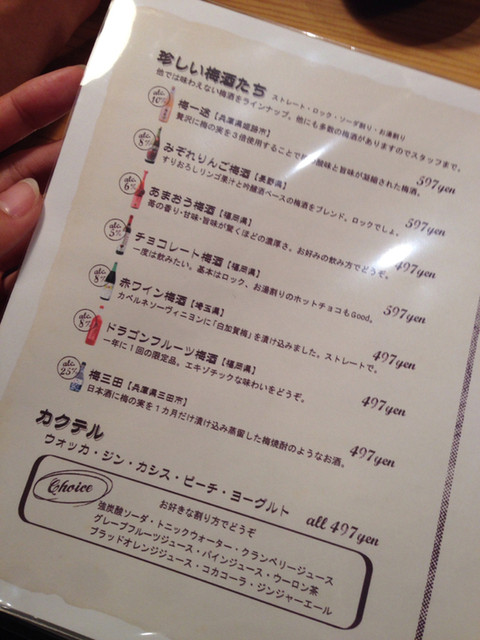 珍しい梅酒たち ストレート・ロック・ソーダ割り・お湯割り
他では味わえない梅酒をラインナップ。他にも多数の梅酒がありますのでスタッフまで。
alc. 10% 梅一途【兵庫県姫路市】
贅沢に梅の実を3倍使用することで 酸味と旨味が凝縮された梅酒。 597yen
alc. 8% みぞれりんご梅酒【長野県】
すりおろしリンゴ果汁と吟醸酒ベースの梅酒をブレンド。ロックでしょ。 597yen
alc. 6% あまおう梅酒【福岡県】
苺の香り・甘味・旨味が驚くほどの濃厚さ。お好みの飲み方でどうぞ。 497yen
alc. 5% チョコレート梅酒【福岡県】
一度は飲みたい。基本はロック、お湯割りのホットチョコもGood。 597yen
alc. 8% 赤ワイン梅酒【埼玉県】
カベルネソーヴィニヨンに「白加賀梅」を漬け込みました。ストレートで。 497yen
alc. 8% ドラゴンフルーツ梅酒【福岡県】
一年に1回の限定品。エキゾチックな味わいをどうぞ。 497yen
alc. 25% 梅三田【兵庫県三田市】
日本酒に梅の実を1カ月だけ漬け込み蒸留した梅焼酎のようなお酒。 497yen
カクテル
ウオッカ・ジン・カシス・ピーチ・ヨーグルト all 497yen
Choice お好きな割り方でどうぞ
強炭酸ソーダ・トニックウォーター・クランベリージュース
グレープフルーツジュース・パインジュース・ウーロン茶
ブラッドオレンジジュース・コカコーラ・ジンジャーエール